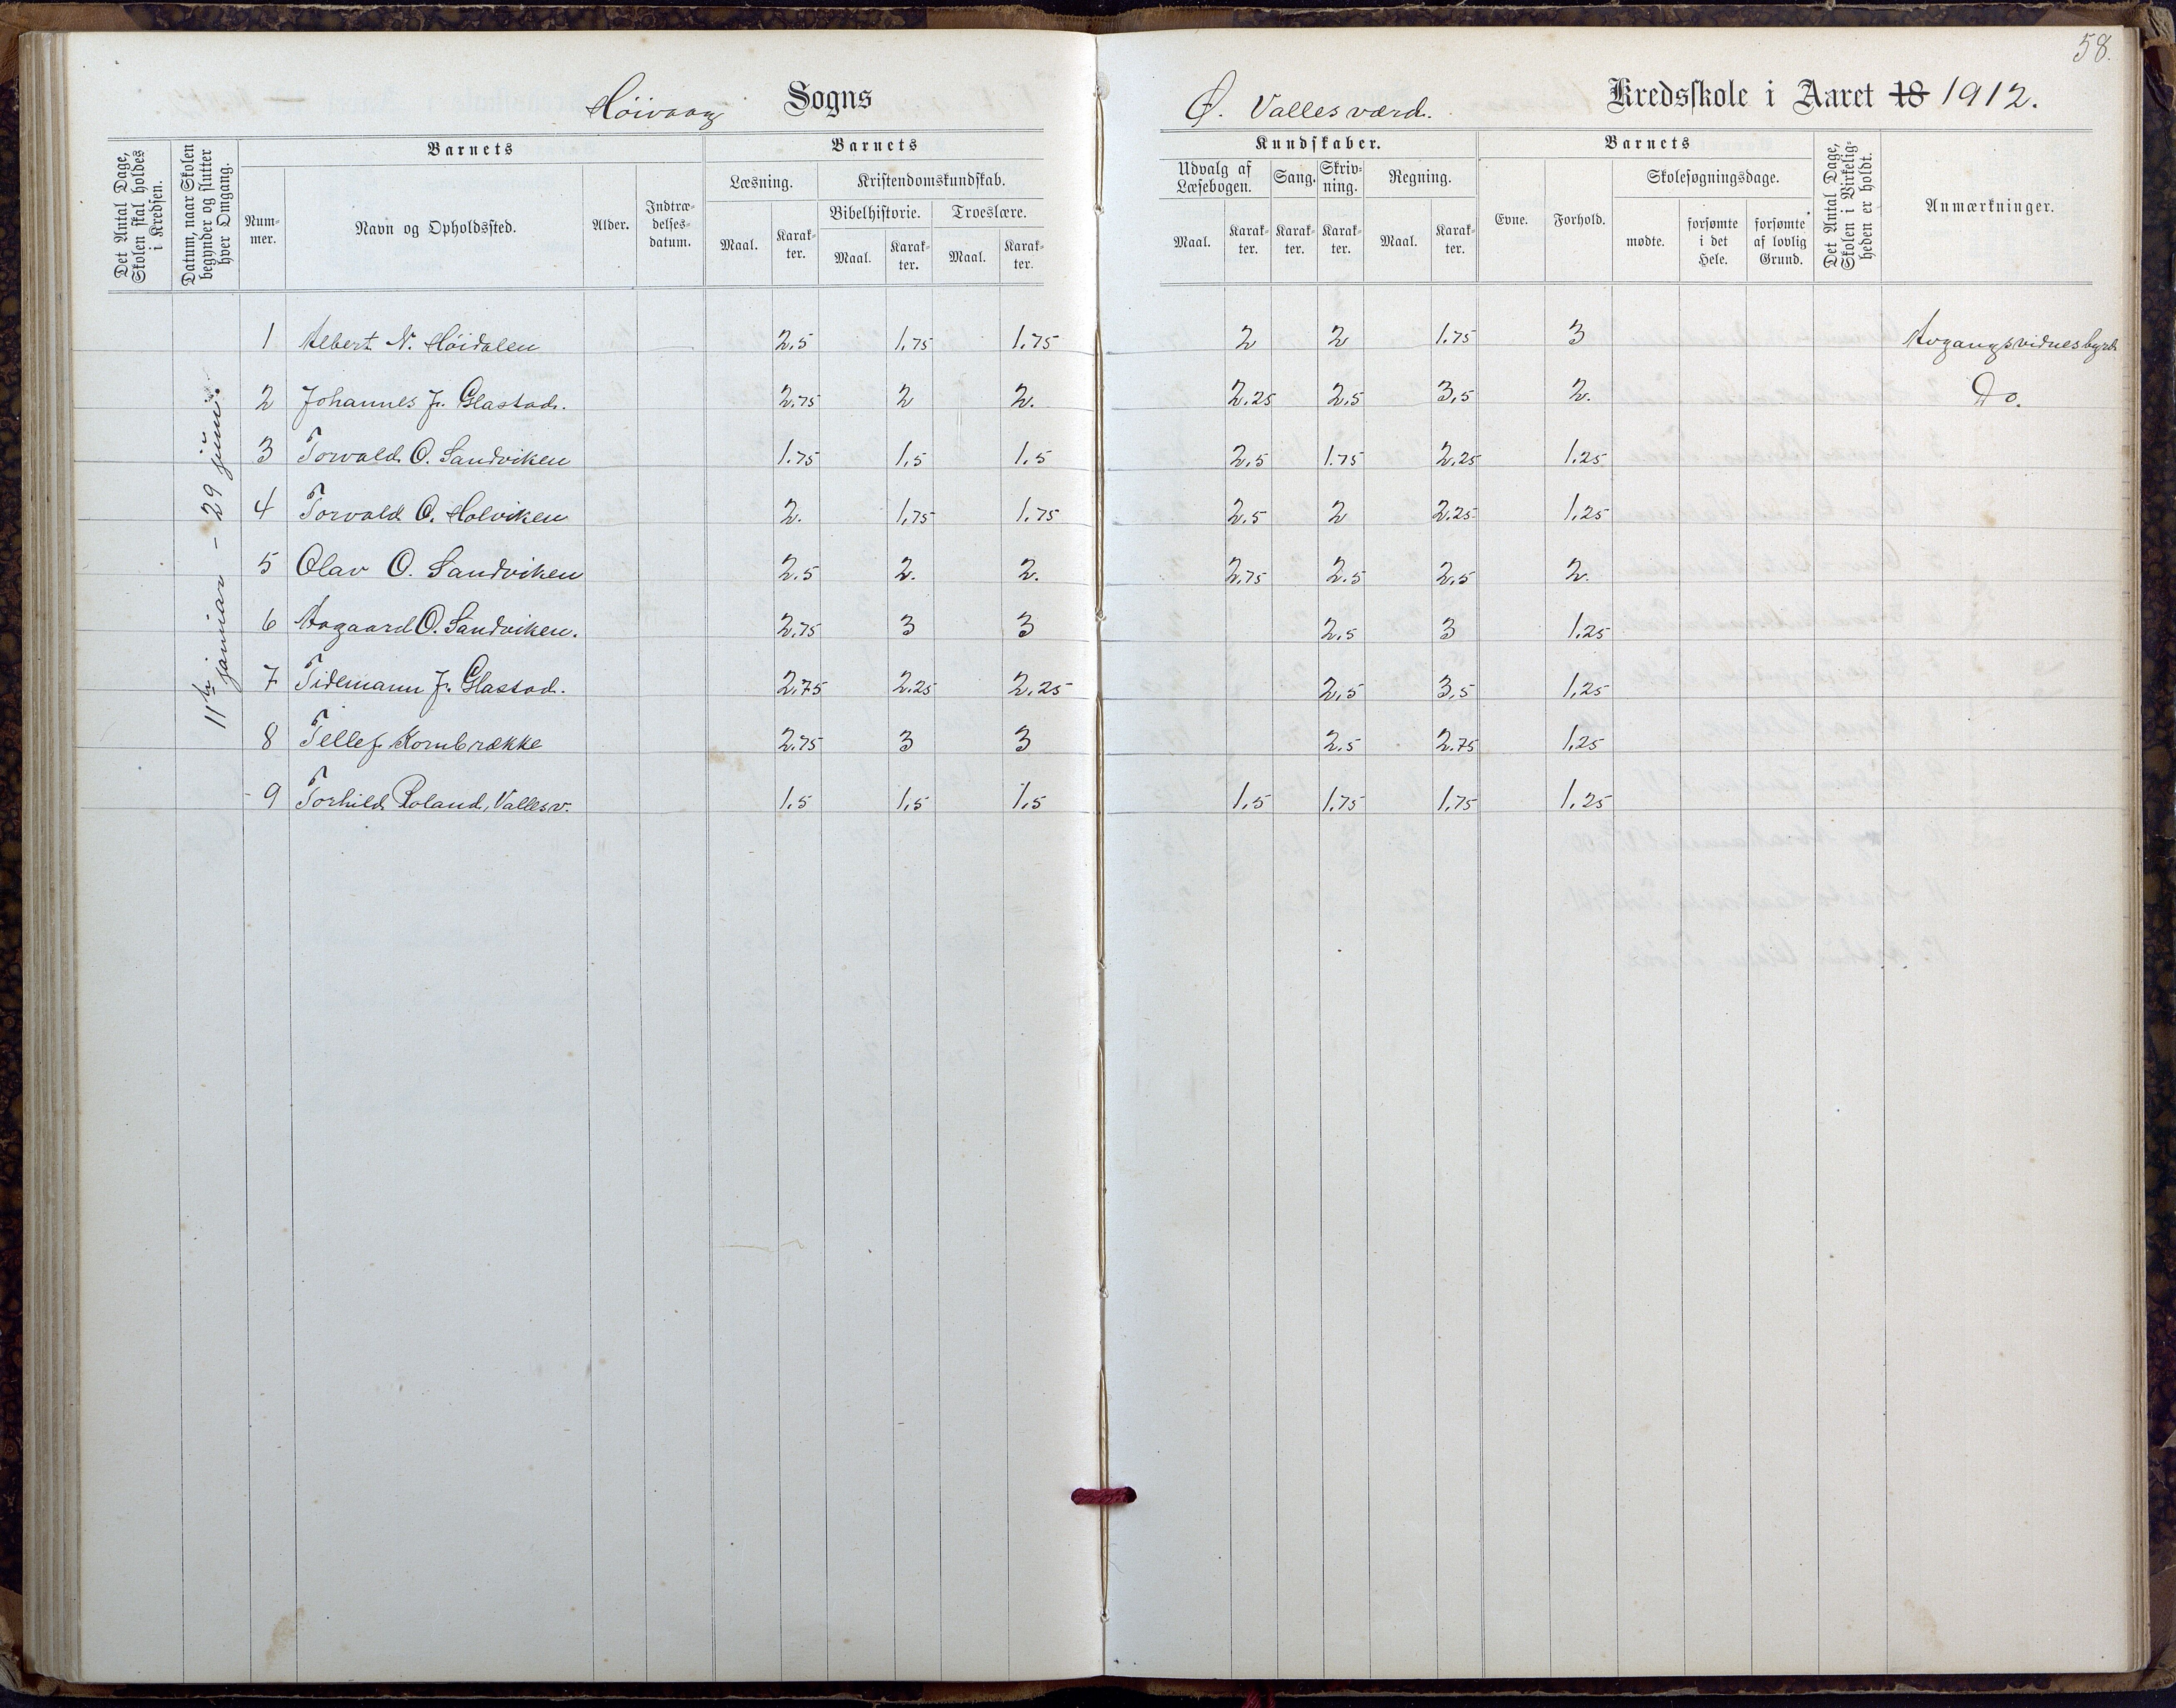 58.
Höivaag Sogns Ø. Vallesværd. Kredsskole i Aaret 18 1912.
Det Antal Dage, Skolen skal holdes i Kredsen.
Datum, naar Skolen begynder og slutter hver Omgang.
Barnets
Num-mer.
Navn og Opholdssted.
Alder.
Indtræ-delses-datum.
Barnets
Læsning.
Maal. Karak-ter.
Kristendomskundskab.
Bibelhistorie. Troeslære.
Maal. Karak-ter. Maal. Karak-ter.
Kundskaber.
Udvalg af Læsebogen. Sang. Skriv-ning. Regning.
Maal. Karak-ter. Karak-ter. Karak-ter. Maal. Karak-ter.
Barnets
Evne. Forhold.
Skolesøgningsdage.
mødte. forsømte i det Hele. forsømte af lovlig Grund.
Det Antal Dage, Skolen i Virkelig-heden er holdt.
Anmærkninger.
11te januar - 29 juni.
1 Albert N. Höidalen 2.5 1.75 1.75 2 2 1.75 3 Avgangsvidnesbyrd
2 Johannes J. Glastad. 2.75 2 2. 2.25 2.5 3.5 2. Do.
3 Torvald O. Sandviken 1.75 1.5 1.5 2.5 1.75 2.25 1.25
4 Torvald O. Holviken 2. 1.75 1.75 2.5 2 2.25 1.25
5 Olav O. Sandviken 2.5 2. 2. 2.75 2.5 2.5 2.
6 Aagaard O. Sandviken. 2.75 3 3 2.5 3 1.25
7 Tidemann J. Glastad. 2.75 2.25 2.25 2.5 3.5 1.25
8 Tellef Kornbrække 2.75 3 3 2.5 2.75 1.25
9 Torhild Roland, Vallesv. 1.5 1.5 1.5 1.5 1.75 1.75 1.25